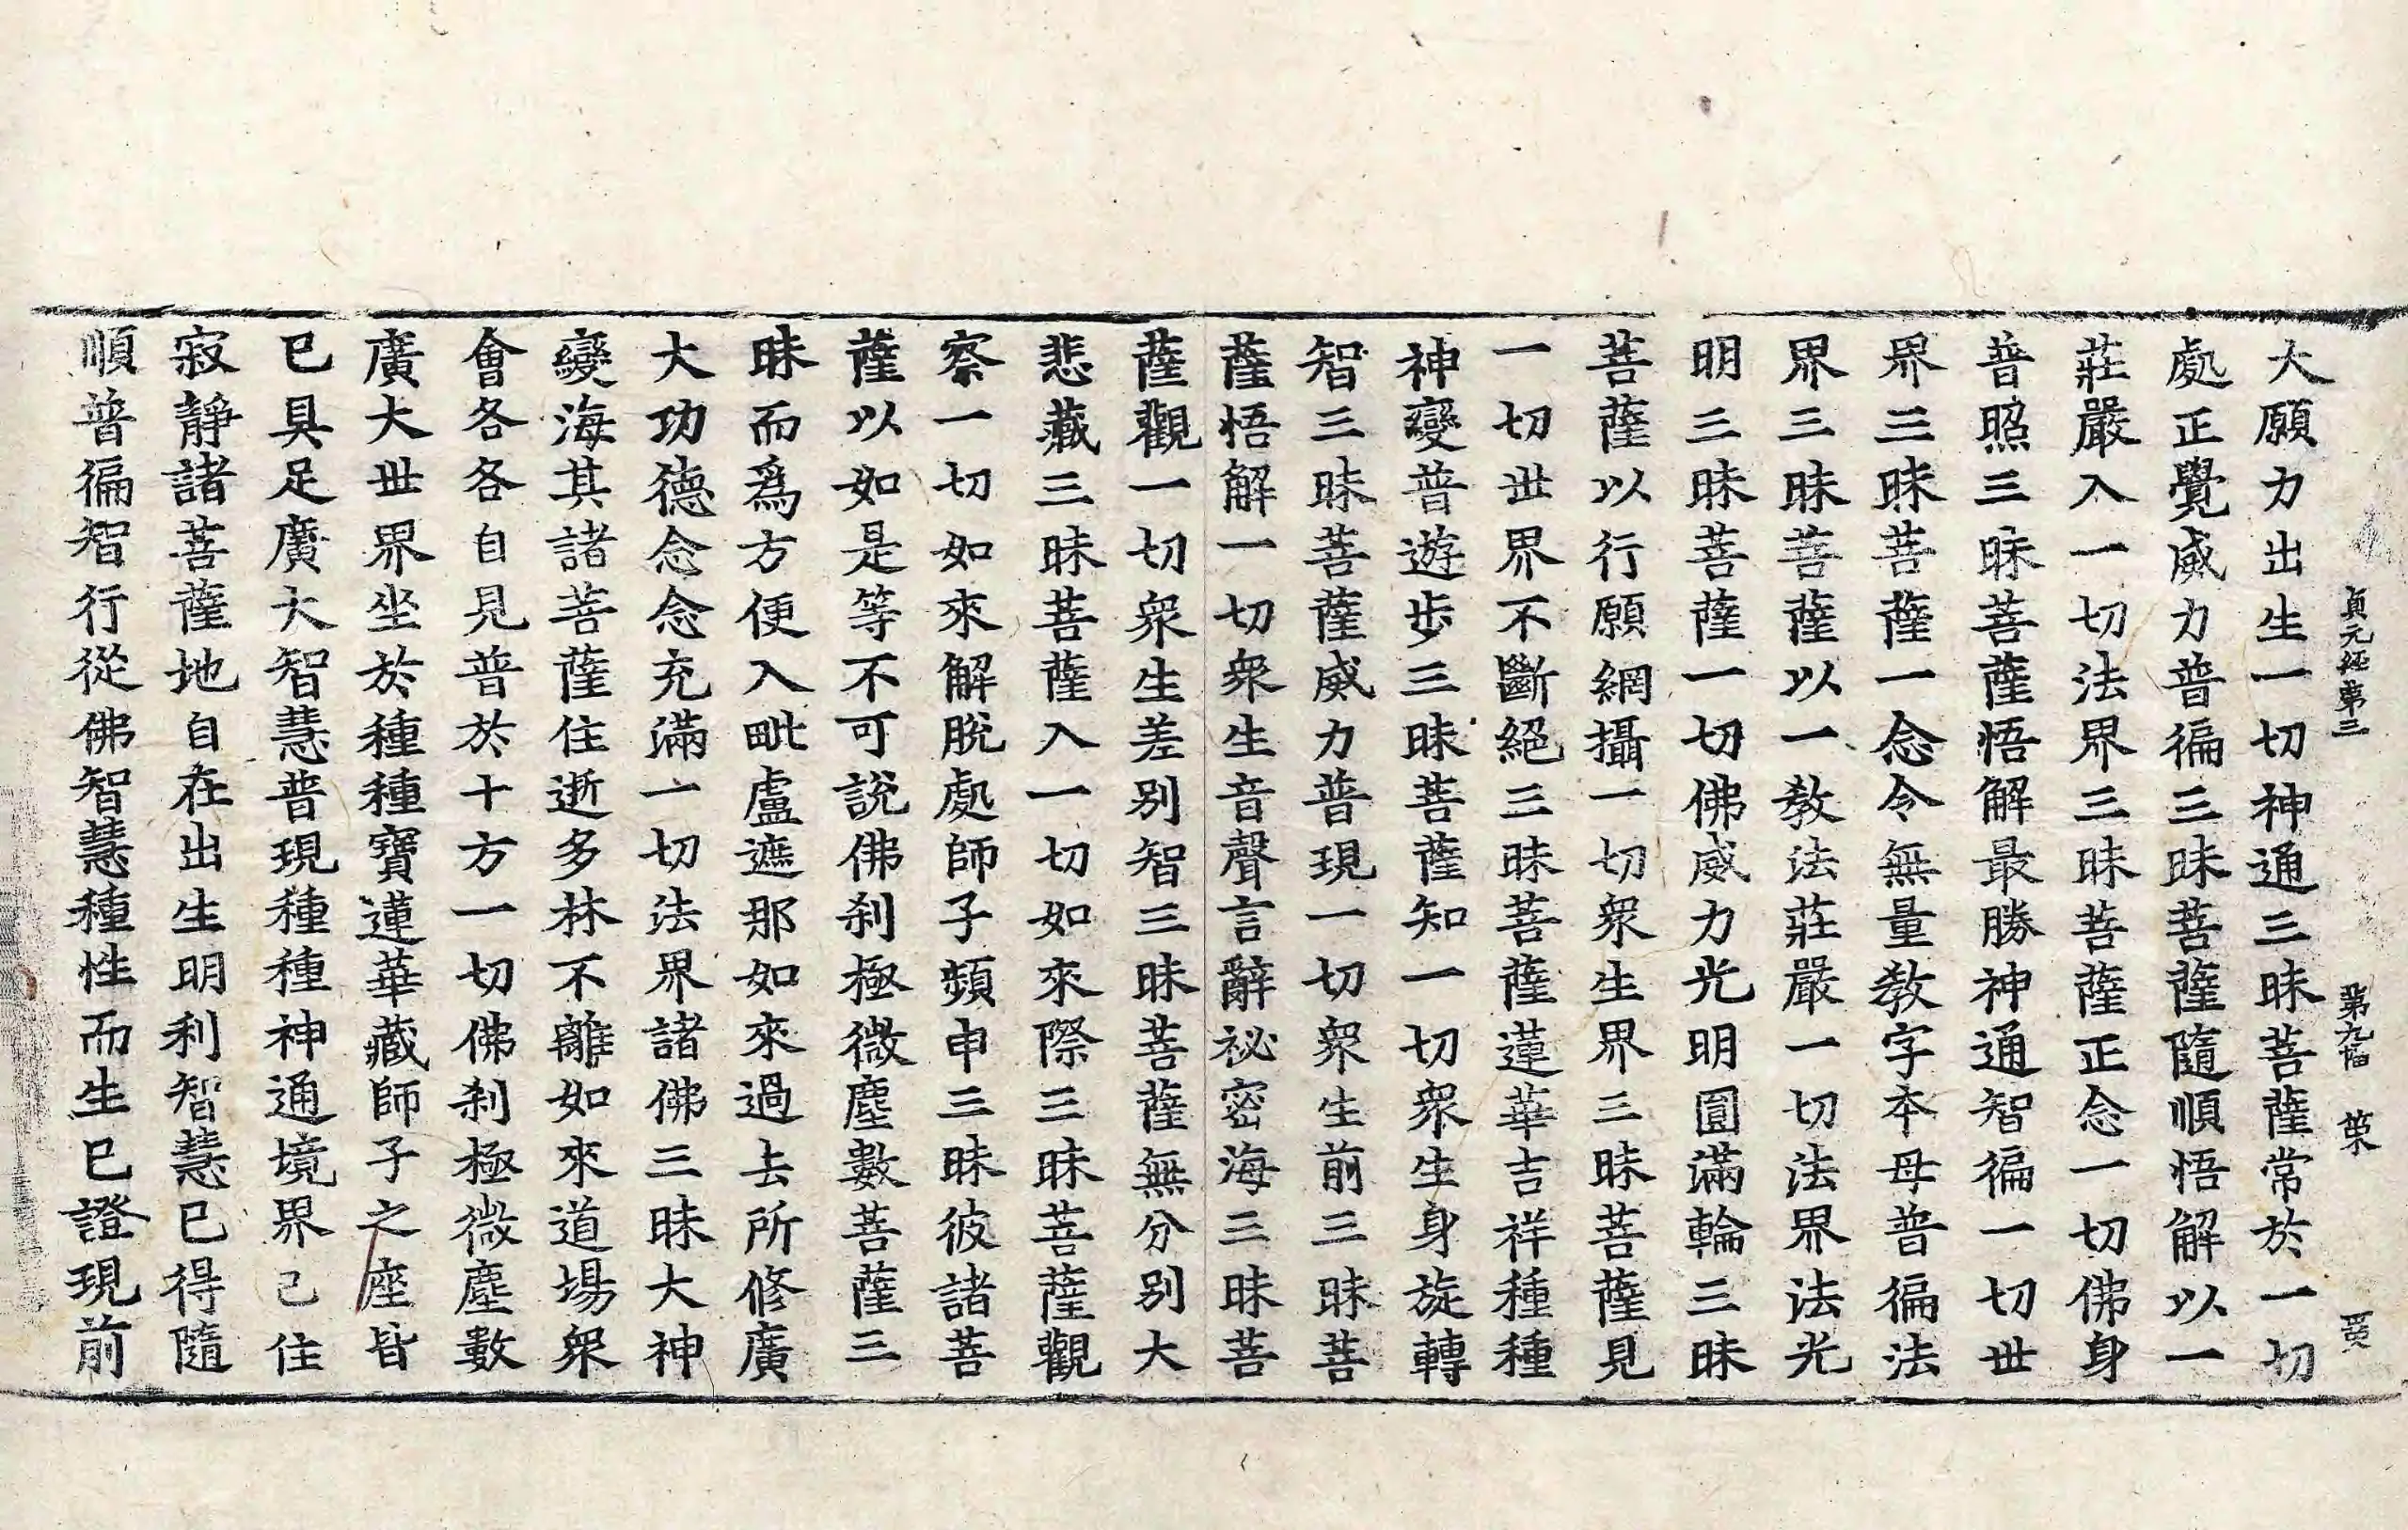 貞元経第三 第九幅
大願力出生一切神通三昧菩薩常於一切
處正覺威力普徧三昧菩薩隨順悟解以一
莊嚴入一切法界三昧菩薩正念一切佛身
普照三昧菩薩悟解最勝神通智徧一切世
界三昧菩薩一念令無量教字本母普徧法
界三昧菩薩以一教法莊嚴一切法界法光
明三昧菩薩一切佛威力光明圓滿輪三昧
菩薩以行願網攝一切衆生界三昧菩薩見
一切世界不斷絕三昧菩薩蓮華吉祥種種
神變普遊步三昧菩薩知一切衆生身旋轉
智三昧菩薩威力普現一切衆生前三昧菩
薩悟解一切衆生音聲言辭祕密海三昧菩
薩觀一切衆生差別智三昧菩薩無分別大
悲藏三昧菩薩入一切如來際三昧菩薩觀
察一切如來解脫處師子頻申三昧彼諸菩
薩以如是等不可說佛刹極微塵數菩薩三
昧而爲方便入毗盧遮那如來過去所修廣
大功德念念充滿一切法界諸佛三昧大神
變海其諸菩薩住逝多林不離如來道場衆
會各各自見普於十方一切佛刹極微塵數
廣大世界坐於種種寶蓮華藏師子之座皆
已具足廣大智慧普現種種神通境界已住
寂靜諸菩薩地自在出生明利智慧已得隨
順普徧智行從佛智慧種性而生已證現前